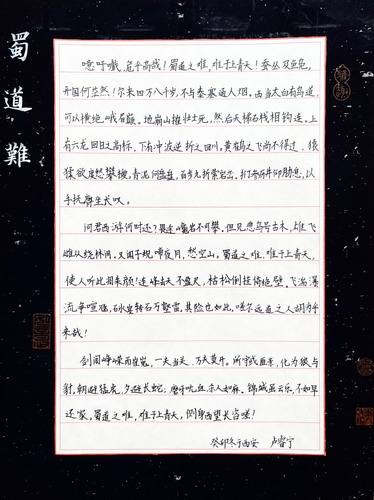 蜀道難
噫吁嚱,危乎高哉!蜀道之难,难于上青天!蚕丛及鱼凫,
开国何茫然!尔来四万八千岁,不与秦塞通人烟。西当太白有鸟道,
可以横绝峨眉巅。地崩山摧壮士死,然后天梯石栈相钩连。上
有六龙回日之高标,下有冲波逆折之回川。黄鹤之飞尚不得过,猿
猱欲度愁攀援。青泥何盘盘,百步九折萦岩峦。扪参历井仰胁息,以
手抚膺坐长叹。
问君西游何时还?畏途巉岩不可攀。但见悲鸟号古木,雄飞
雌从绕林间。又闻子规啼夜月,愁空山。蜀道之难,难于上青天,
使人听此凋朱颜!连峰去天不盈尺,枯松倒挂倚绝壁。飞湍瀑
流争喧豗,砯崖转石万壑雷。其险也如此,嗟尔远道之人胡为乎
来哉!
剑阁峥嵘而崔嵬,一夫当关,万夫莫开。所守或匪亲,化为狼与
豺。朝避猛虎,夕避长蛇;磨牙吮血,杀人如麻。锦城虽云乐,不如早
还家。蜀道之难,难于上青天,侧身西望长咨嗟!
癸卯冬于西安 卢睿宁